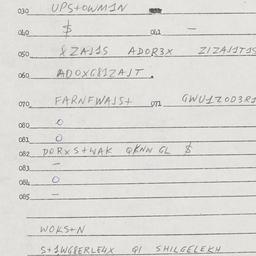 030 UPS+OWM1N
040 $ 041 –
050 8ZA11S ADOR3X
060 ADOXG81ZA1T.
070 FARNFWA1S+ 071
080 0
081 0
082 DORXS+4AK QKNN GL $
083 –
084 0
085 –
WOKS+N
S+1WG8ERLE4X Q1 SHILGELEKH